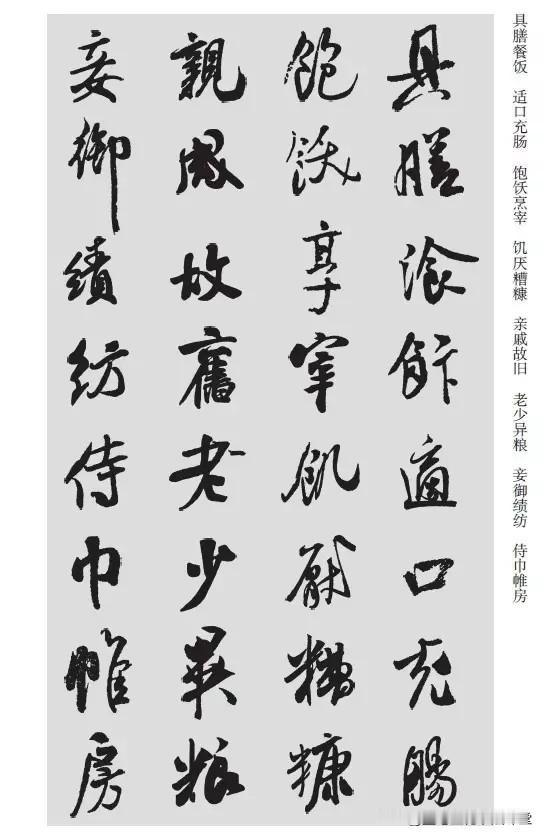 具膳餐饭　适口充肠　饱饫烹宰　饥厌糟糠　亲戚故旧　老少异粮　妾御绩纺　侍巾帷房
具膳湌飰適口充腸
飽飫享宰飢厭糟糠
親戚故舊老少異粮
妾御績紡侍巾帷房